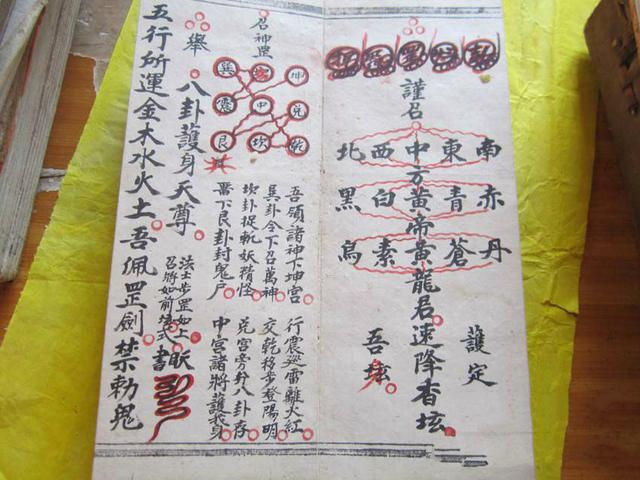 南赤丹
東青蒼
謹召中方黃帝黃龍君速降香坛
西白素
北黑烏
護定
吾坛
召神罡
巽 坤
震 中 兌
艮 坎 乾
吾領諸神下坤宮
行震巡雷離火紅
巽卦令下召萬神
交乾移步登陽明
坎卦捉乾妖精怪
兌宮旁卦八卦存
下艮卦封鬼戶
中宮諸將護我身
舉 八卦護身天尊
法士步罡如
召將如前式
書
五行所運金木水火土吾佩罡劍禁勅鬼